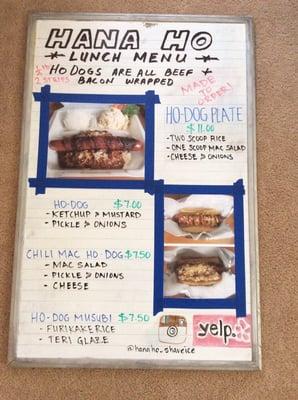 HANA HO
LUNCH MENU
HO DOGS ARE ALL BEEF +
BACON WRAPPED
MADE
TO
ORDER!
HO-DOG PLATE
$11.00
- TWO SCOOP RICE
- ONE SCOOP MAC SALAD
- CHEESE & ONIONS
HO-DOG $7.00
- KETCHUP & MUSTARD
- PICKLE & ONIONS
CHILI MAC HO-DOG $7.50
- MAC SALAD
- PICKLE & ONIONS
- CHEESE
HO-DOG MUSUBI $7.50
- FURIKAKE RICE
- TERI GLAZE
yelp
@hanaho_shaveice